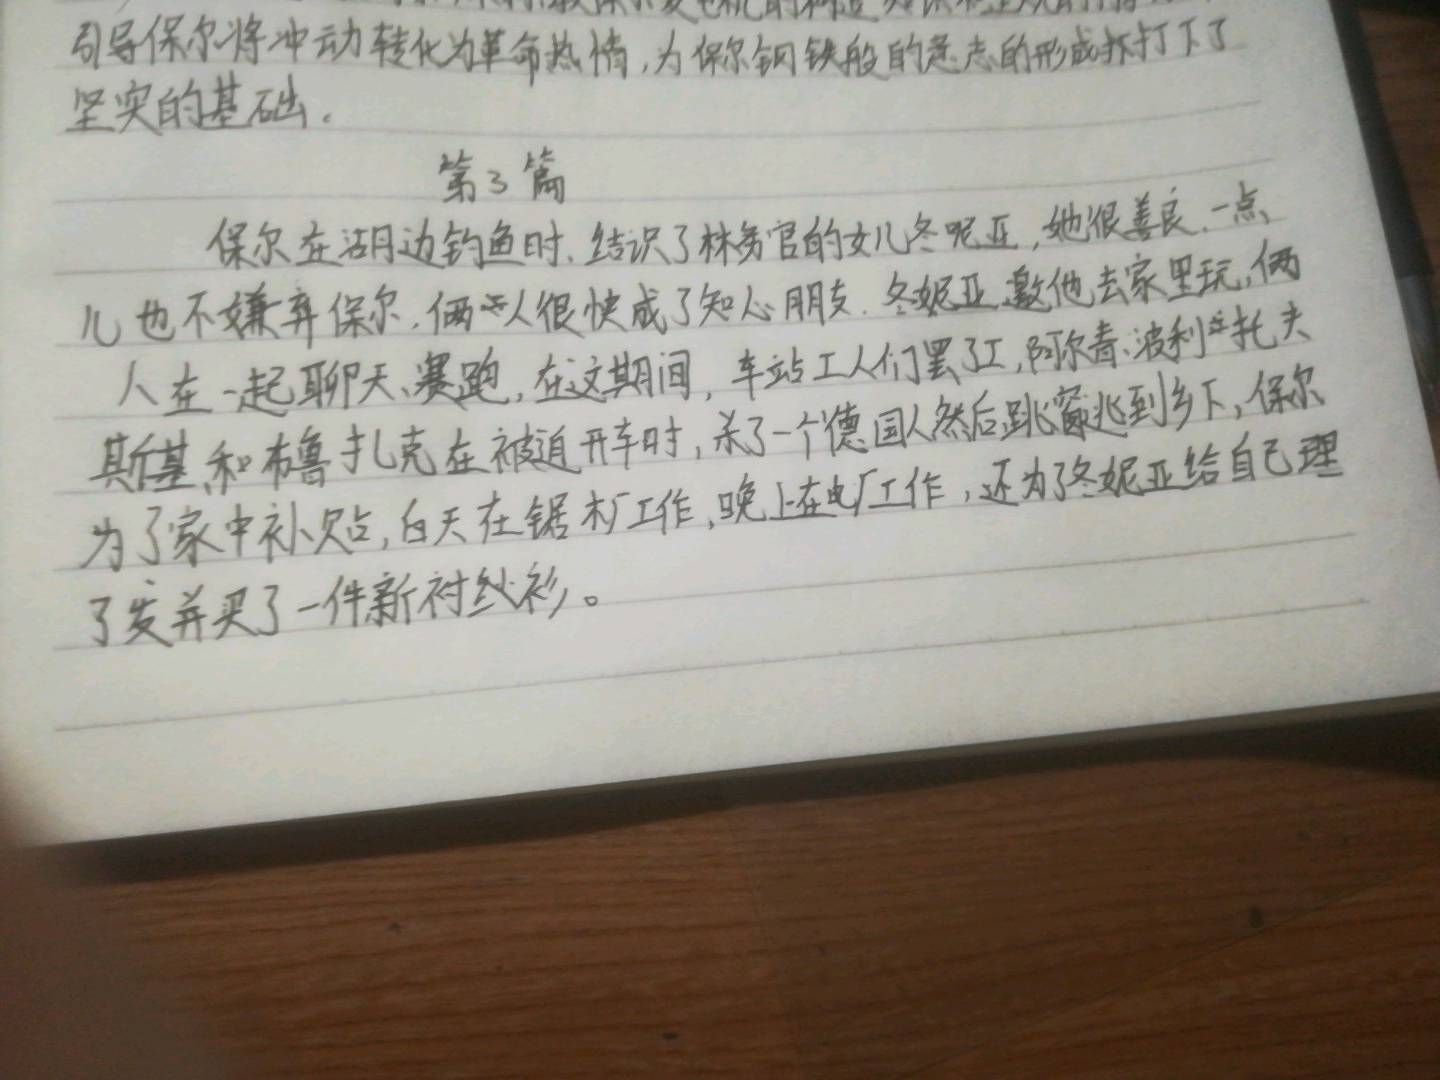 引导保尔将冲动转化为革命热情,为保尔钢铁般的意志的形成打下了
坚实的基础.
第3篇
保尔在湖边钓鱼时.结识了林务官的女儿冬呢亚,她很善良.一点
儿也不嫌弃保尔.俩人很快成了知心朋友.冬妮亚邀他去家里玩,俩
人在一起聊天、赛跑,在这期间,车站工人们罢了工,阿尔青、波利托夫
斯基和布鲁扎克在被迫开车时,杀了一个德国人然后跳窗逃到乡下,保尔
为了家中补贴,白天在锯木厂工作,晚上在电厂工作,还为了冬妮亚给自己理
了发并买了一件新衬衫。